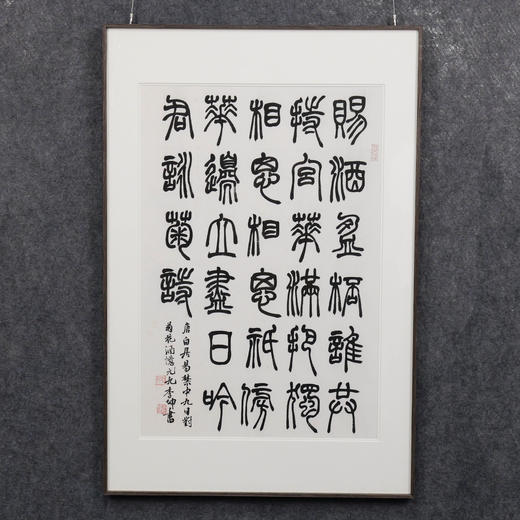 賜酒盈桮誰共
持宮華滿把獨
相思相思祇傍
華邊立盡日吟
君詠菊詩
唐白居易禁中九日對
菊花酒憶元九 李坤書